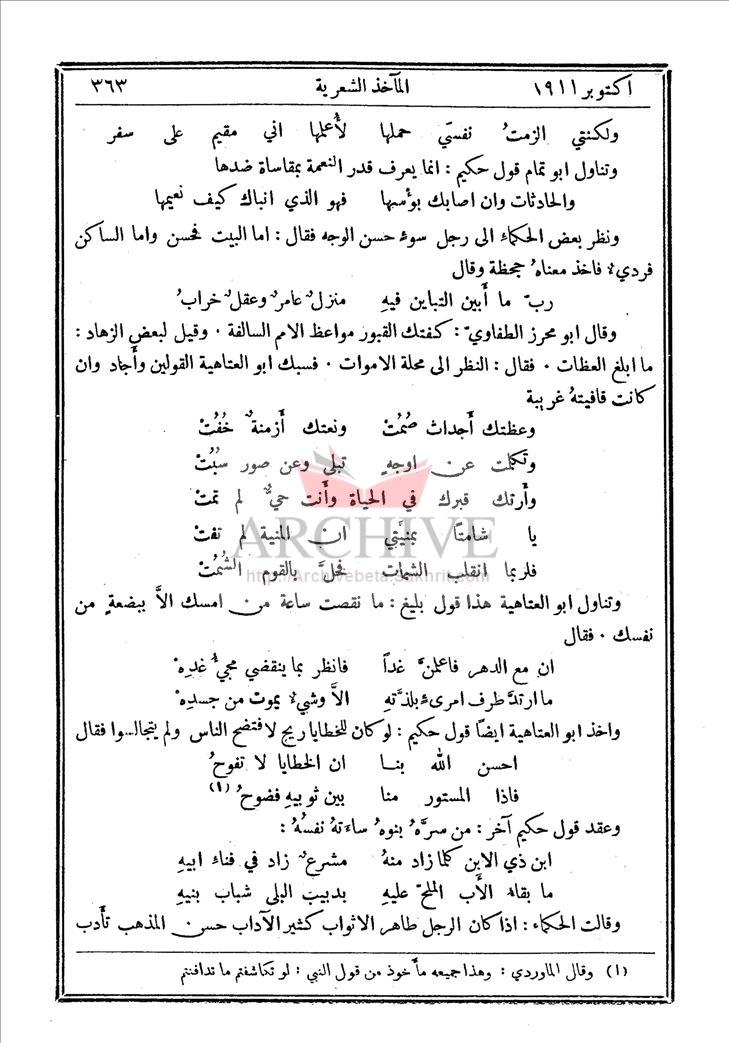 اكتوبر ١٩١١ المآخذ الشعرية ٣٦٣
ولكنني الزمتُ نفسي حملها لأُعملها اني مقيم على سفر
وتناول ابو تمام قول حكيم : انما يعرف قدر النعمة بمقاساة ضدها
والحادثات وان اصابك بؤسها فهو الذي انباك كيف نعيمها
ونظر بعض الحكماء الى رجل سوء حسن الوجه فقال : اما البيت فحسن واما الساكن
فردي‌ء فاخذ معناهُ جحظة وقال
ربّ ما أَبين التباين فيهِ منزلٌ عامرٌ وعقلٌ خرابُ
وقال ابو محرز الطفاويّ : كفتك القبور مواعظ الامم السالفة ٠ وقيل لبعض الزهاد :
ما ابلغ العظات ٠ فقال : النظر الى محلة الاموات ٠ فسبك ابو العتاهية القولين وأجاد وان
كانت قافيتهُ غريبة
وعظتك أَجداث صُمُتْ ونعتك أَزمنةٌ خُفُتْ
وتكلمت عن اوجهٍ تبلى وعن صور سبُتْ
وأَرتك قبرك في الحياة وأَنت حيٌّ لم تمتْ
يا شامتًا بمنيَّتي ان المنية لم تفتْ
فلربما انقلب الشمات فحلَّ بالقوم الشُمُتْ
ARCHIVE
http://Archivebeta.Sakhrit.com
وتناول ابو العتاهية هذا قول بليغ : ما نقصت ساعة من امسك الاَّ ببضعةٍ من
نفسك ٠ فقال
ان مع الدهر فاعلمنَّ غداً فانظر بما ينقضي مجيُّ غدِهْ
ما ارتدَّ طرف امرىء بلذَّتهِ الاَّ وشيء يموت من جسدِهْ
واخذ ابو العتاهية ايضًا قول حكيم : لو كان للخطايا ريح لافتضح الناس ولم يتجالسوا فقال
احسن الله بنا ان الخطايا لا تفوحُ
فاذا المستور منا بين ثوبيهِ فضوحُ (١)
وعقد قول حكيم آخر : من سرَّهُ بنوهُ ساءَتهُ نفسُهُ :
ابن ذي الابن كلما زاد منهُ مشرعٌ زاد في فناء ابيهِ
ما بقاء الأَب الملحّ عليهِ بدبيب البلى شباب بنيهِ
وقالت الحكماء : اذا كان الرجل طاهر الاثواب كثير الآداب حسن المذهب تأَدب
(١) وقال الماوردي : وهذا جميعه مأخوذ من قول النبي : لو تكاشفتم ما تدافنتم